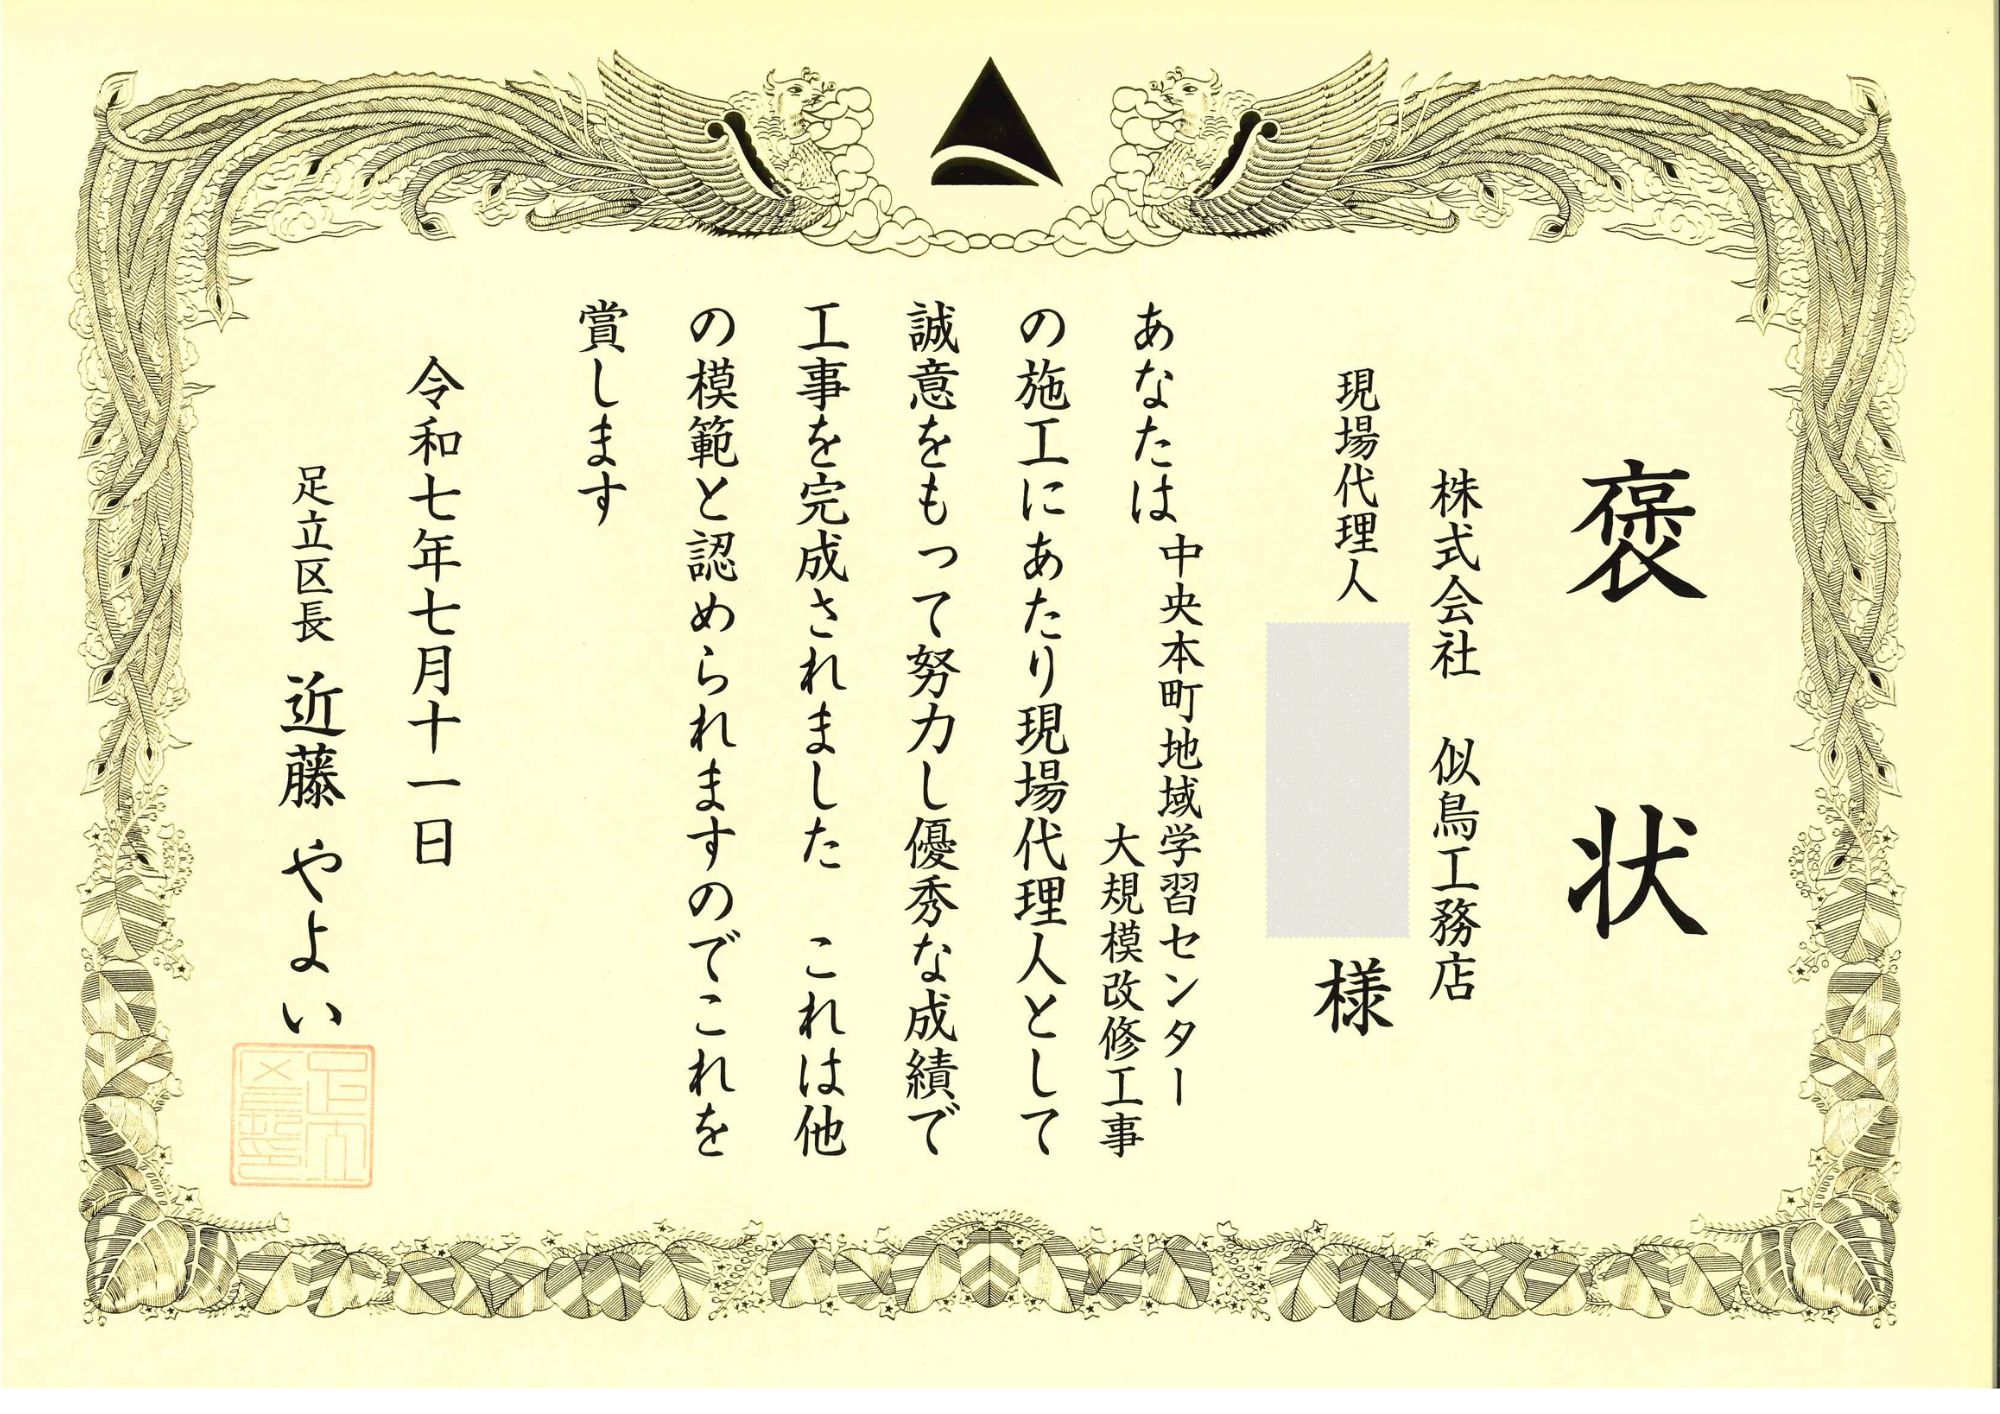 褒状
株式会社　似鳥工務店
現場代理人
様
あなたは中央本町地域学習センター
大規模改修工事
の施工にあたり現場代理人として
誠意をもって努力し優秀な成績で
工事を完成されました　これは他
の模範と認められますのでこれを
賞します
令和七年七月十一日
足立区長　近藤やよい